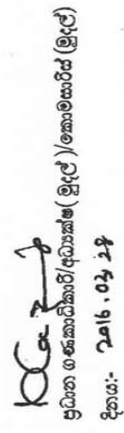 ප්‍රධාන ගණකාධිකාරි/අධ්‍යක්ෂ( මුදල් )/කොමසාරිස් (මුදල්)
දිනය:- 2016.03.28